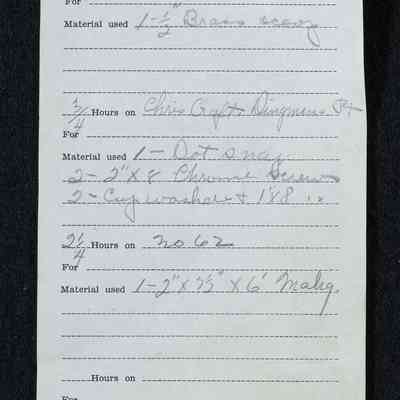 For
Material used 1-½" Brass
¾ Hours on Chris Craft Dingmans Pt
For
Material used 1 - Dot snap
2 - 2" x 8 Chrome Screws
2 - Cup washers + 1 8
2¼ Hours on no 62
For
Material used 1-2" x 7½" x 6' Mahg.
Hours on
For